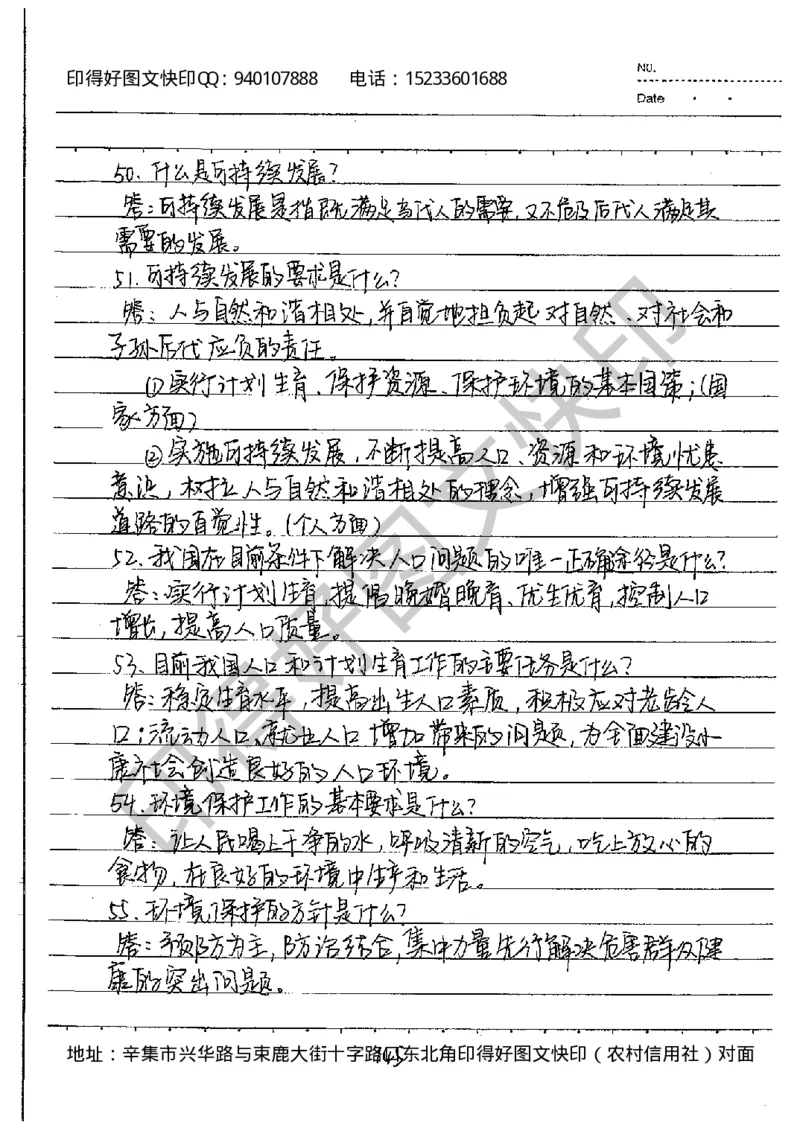 印得好图文快印QQ：940107888 电话：15233601688
NO.
Date
50. 什么是可持续发展？
答：可持续发展是指既满足当代人的需要，又不危及后代人满足其
需要的发展。
51. 可持续发展的要求是什么？
答：人与自然和谐相处，并自觉地担负起对自然、对社会和
子孙后代应负的责任。
①实行计划生育、保护资源、保护环境的基本国策；（国
家方面）
②实施可持续发展，不断提高人口、资源和环境忧患
意识，树立人与自然和谐相处的理念，增强可持续发展
道路的自觉性。（个人方面）
52. 我国在目前条件下解决人口问题的唯一正确途径是什么？
答：实行计划生育，提倡晚婚晚育、优生优育，控制人口
增长，提高人口质量。
53. 目前我国人口和计划生育工作的主要任务是什么？
答：稳定生育水平，提高出生人口素质，积极应对老龄人
口；流动人口、就业人口增加带来的问题，为全面建设小
康社会创造良好的人口环境。
54. 环境保护工作的基本要求是什么？
答：让人民喝上干净的水，呼吸清新的空气，吃上放心的
食物，在良好的环境中生产和生活。
55. 环境保护的方针是什么？
答：预防为主，防治结合，集中力量先行解决危害群众健
康的突出问题。
地址：辛集市兴华路与束鹿大街十字路口东北角印得好图文快印（农村信用社）对面
印得好图文快印